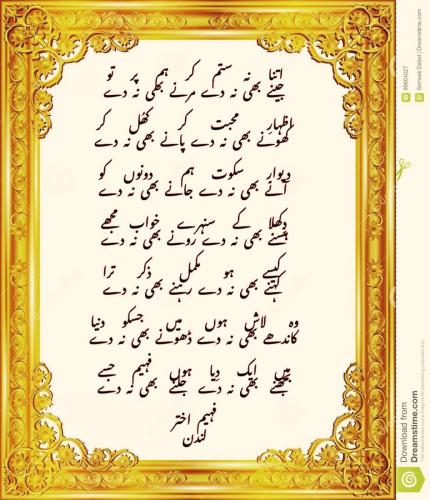 اتنا نہ ستم کر ہم پر تو
جینے بھی نہ دے مرنے بھی نہ دے
اظہارِ محبت کر کھُل کر
کھونے بھی نہ دے پانے بھی نہ دے
دیوارِ سکوت ہم دونوں کو
آنے بھی نہ دے جانے بھی نہ دے
دکھلا کے سنہرے خواب مجھے
ہنسنے بھی نہ دے رونے بھی نہ دے
کیسے ہو مکمل ذکر ترا
کہنے بھی نہ دے رہنے بھی نہ دے
وہ لاش ہوں میں جسکو دنیا
کاندھے بھی نہ دے ڈھونے بھی نہ دے
میں ایک دِیا ہوں فہیم جسے
بجھنے بھی نہ دے جلنے بھی نہ دے
فہیم اختر
لندن
99604027 © Somsak Deitud | Dreamstime.com
Download from
Dreamstime.com